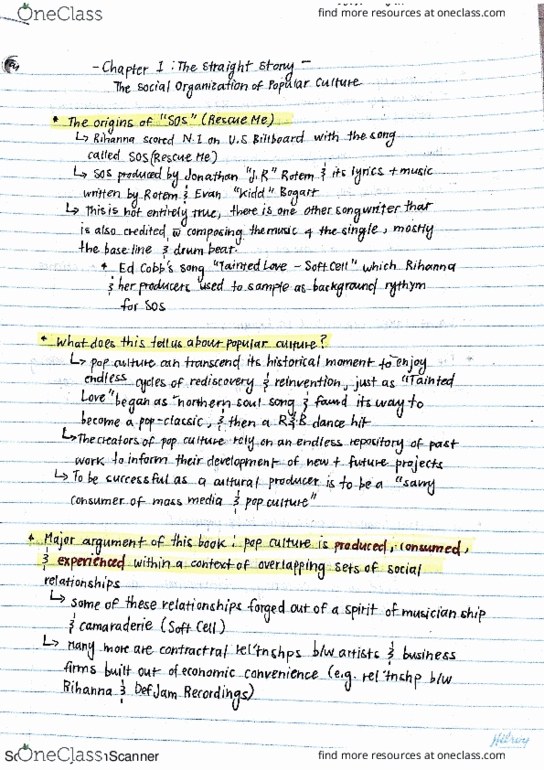 OneClass
find more resources at oneclass.com
- Chapter 1 : The Straight Story -
The Social Organization of Popular Culture
* The origins of "SOS" (Rescue Me)
↳ Rihanna scored N.1 on U.S Billboard with the song
called SOS (Rescue Me)
↳ SOS produced by Jonathan "J.R" Rotem & its lyrics + music
written by Rotem & Evan "Kidd" Bogart
↳ This is not entirely true, there is one other songwriter that
is also credited @ composing the music of the single, mostly
the base line & drum beat.
* Ed Cobb's song "Tainted Love - Soft Cell" which Rihanna
& her producers used to sample as background rythym
for SOS
* What does this tell us about popular culture?
↳ pop culture can transcend its historical moment to enjoy
endless cycles of rediscovery & reinvention, just as "Tainted
Love" began as "northern soul song & found its way to
become a pop-classic, & then a R&B dance hit
↳ The creators of pop culture rely on an endless repository of past
work to inform their development of new + future projects
↳ To be successful as a cultural producer is to be a "savvy
consumer of mass media & pop culture"
* Major argument of this book : pop culture is produced, consumed,
& experienced within a context of overlapping sets of social
relationships
↳ some of these relationships forged out of a spirit of musician ship
& camaraderie (Soft Cell)
↳ Many more are contractral rel'tnshps b/w artists & business
firms built out of economic convenience (e.g. rel'tnshp b/w
Rihanna & Def Jam Recordings)
Hilroy
OneClass
Scanner
find more resources at oneclass.com